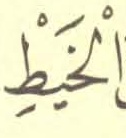 الْخَيْطِ